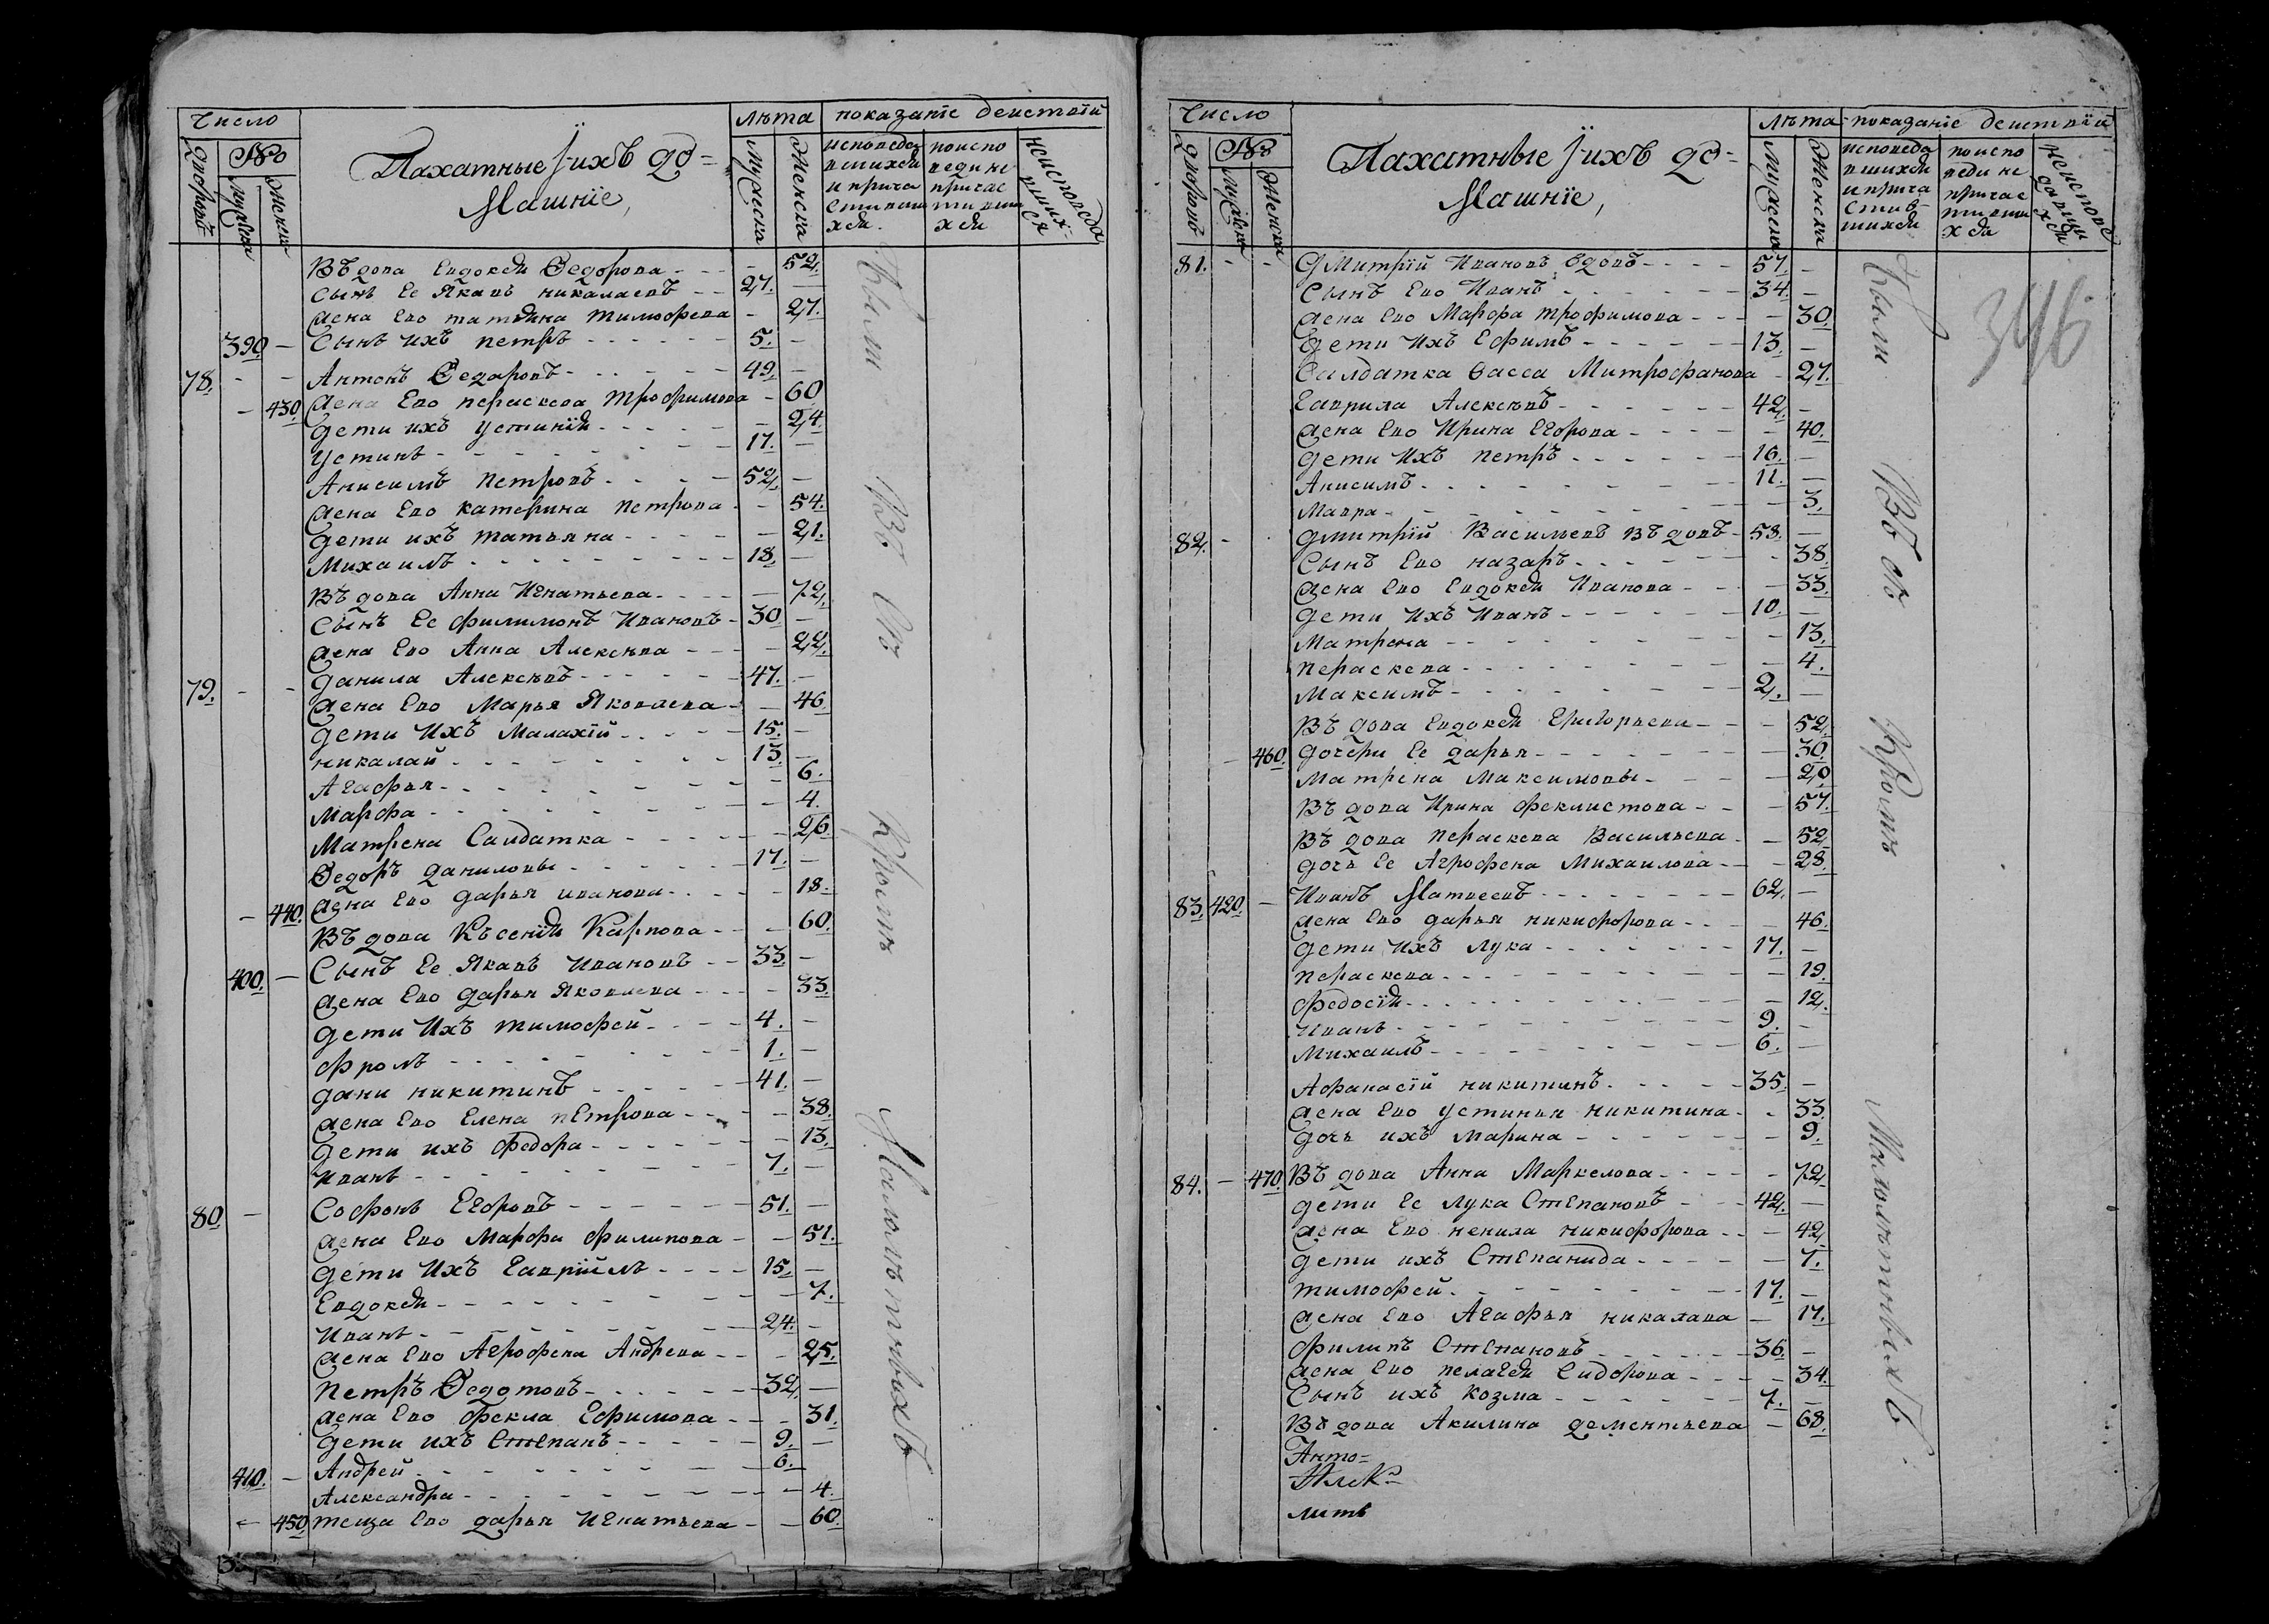 Число
Лѣта показанїе деиствїй
Пахатные і ихъ до=
Машнїе,
дворовъ
№
мужеска
женска
Мужеска
Женска
исповеда
вшихся
и прича
стивши
хся.
поиспо
веди не
причас
тивши
хся
неисповеда
вших=
ся
Въдова Евдокея Ѳедорова - - - 52.
Сынъ Ее Яковъ никалаевъ - - 27. -
жена Ево татияна тимофева - 27.
390. - Сынъ ихъ петръ - - - - - 5. -
78. - - Антонъ Ѳедоровъ - - - - - 49. -
- 430. жена Ево пераскева трофимова - 60
дети ихъ устинїя - - - - - 24.
устинъ - - - - - - 17. -
Анисимъ петровъ - - - - 52. -
жена Ево катерина петрова - - 54.
дети ихъ татьяна - - - - - 21.
Михаилъ - - - - - - - 18 -
Въдова Анна Игнатьева - - - - 72.
Сынъ Ее филимонъ Ивановъ - 30 -
жена Ево Анна Алексѣва - - - 22.
79. - - данила Алексѣвъ - - - - - 47. -
жена Ево Марья Яковлева - - 46.
дети Ихъ Малахїй - - - - 15. -
никалай - - - - - - - 13. -
Агафья - - - - - - - 6.
Марфа - - - - - - - 4.
Матрена Салдатка - - - - - 26
Ѳедоръ даниловы - - - - - 17. -
- 440. жена Ево дарья иванова - - - - 18.
Въдова Късенїя Карпова - - - 60.
400. - Сынъ Ее Яковъ Ивановъ - - 33. -
жена Ево дарья Яковлева - - - 33.
дети Ихъ тимофей - - - - 4. -
фролъ - - - - - - - 1. -
дани никитинъ - - - - - 41. -
жена Ево Елена пЕтрова - - - 38.
дети ихъ федора - - - - - - 13.
иванъ - - - - - - - 7. -
80. - Софонъ Егоровъ - - - - - 51. -
жена Ево Марфа филипова - - 51.
дети Ихъ Гаврїилъ - - - - 15. -
Евдокея - - - - - - - 7.
Иванъ - - - - - - - 24. -
жена Ево Агрофена Андрева - - - 25.
петръ Ѳедотовъ - - - - - 32. -
жена Ево фекла Ефимова - - - 31.
дети ихъ Степанъ - - - - - 9. -
410. - Андрей - - - - - - - 6. -
Александра - - - - - - - 4.
- 450. теща Ево дарья Игнатьева - - 60.
Были
Всѣ
Кромѣ
Малолѣтныхъ
Число
Лѣта показанїе деиствїй
Пахатные і ихъ до=
Машнїе,
дворовъ
№
мужеска
Женска
Мужеска
Женска
исповеда
вшихся
и прича
стив-
шихся
поиспо
веди не
причас
тивши
хся
неисповеда
вши
хся
346
81. - - Дмитрїй Ивановъ вдовъ - - - - 57. -
Сынъ Ево Иванъ - - - - - - 34. -
жена Ево Марфа трофимова - - - 30.
дети Ихъ Ефимъ - - - - - 13. -
Салдатка Васса Митрофанова - 27.
Гаврила Алексѣвъ - - - - - 42. -
жена Ево Ирина Егорова - - - - 40.
дети Ихъ петръ - - - - - - 16. -
Анисимъ - - - - - - - 11. -
Мавра - - - - - - - 3.
82. - дмитрїй Васильевъ въдовъ - 58. -
Сынъ Ево назаръ - - - - - 38.
жена Ево Евдокея Иванова - - - 33.
дети Ихъ Иванъ - - - - - - 10. -
Матрена - - - - - - - 13.
пераскева - - - - - - - 4.
Максимъ - - - - - - - 2. -
Въдова Евдокея Григорьева - - - 52.
- 460. дочери Ее дарья - - - - - - 30.
Матрена Максимовы - - - - - 20
Въдова Ирина феклистова - - - 57.
Въдова пераскева Васильева - - 52.
дочь Ее Агрофена Михаилова - - - 28.
83. 420. - Иванъ Матвеевъ - - - - - - 62. -
жена Ево дарья никифорова - - - 46.
дети Ихъ лука - - - - - - - 17. -
пераскева - - - - - - - 19.
федосїя - - - - - - - 12.
Иванъ - - - - - - - 9. -
Михаилъ - - - - - - - 6. -
Афанасїй никитинъ - - - - - 35. -
жена Ево устинья никитина - - 33.
дочь ихъ марина - - - - - - 9.
84. - 470. Въдова Анна Маркелова - - - - 72.
дети Ее лука Степановъ - - - 42. -
жена Ево ненила никифорова - - - 42.
дети ихъ Степанида - - - - - 7.
тимофей - - - - - - - 17. -
жена Ево Агафья никалава - 17.
филипъ Степановъ - - - - - 36. -
жена Ево пелагея Сидорова - - - - 34.
Сынъ ихъ козма - - - - - - 7. -
Въдова Акилина дементьева - 68.
Анто=
Алек=
литъ
Были
Всѣ
Кромѣ
Малолѣтныхъ